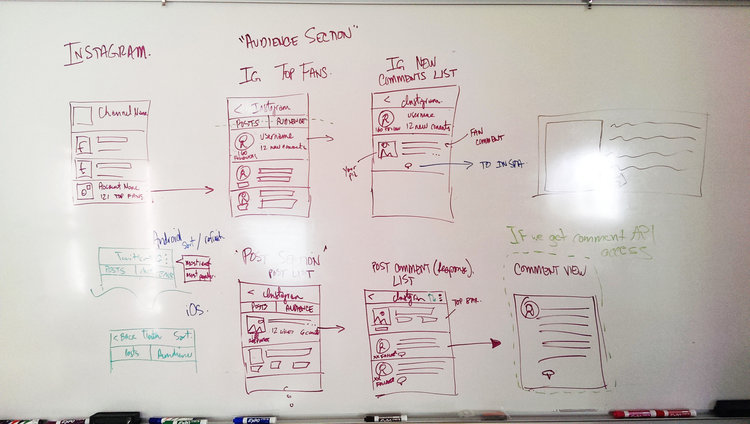 INSTAGRAM.
"AUDIENCE SECTION"
IG TOP FANS.
IG NEW
COMMENTS LIST
Channel Name
Account Name
121 TOP FANS
< Instagram
POSTS | AUDIENCE
R username
12 new comments
160
R
R
< Instagram
R username
160 Follow 12 new comments
FAN
COMMENT
Your
pic
TO INSTA
Android
Sort / refresh
Twitter
POSTS
Most recent
Most popular
iOS.
< Back Twitter Sort.
Posts | Audience
"POST SECTION"
POST LIST
< Instagram
POSTS | AUDIENCE
12 Likes 6 comments
POST COMMENT (Response)
LIST
< Instagram
TOP BAR
R
R
If we get comment API
access
COMMENT VIEW
R